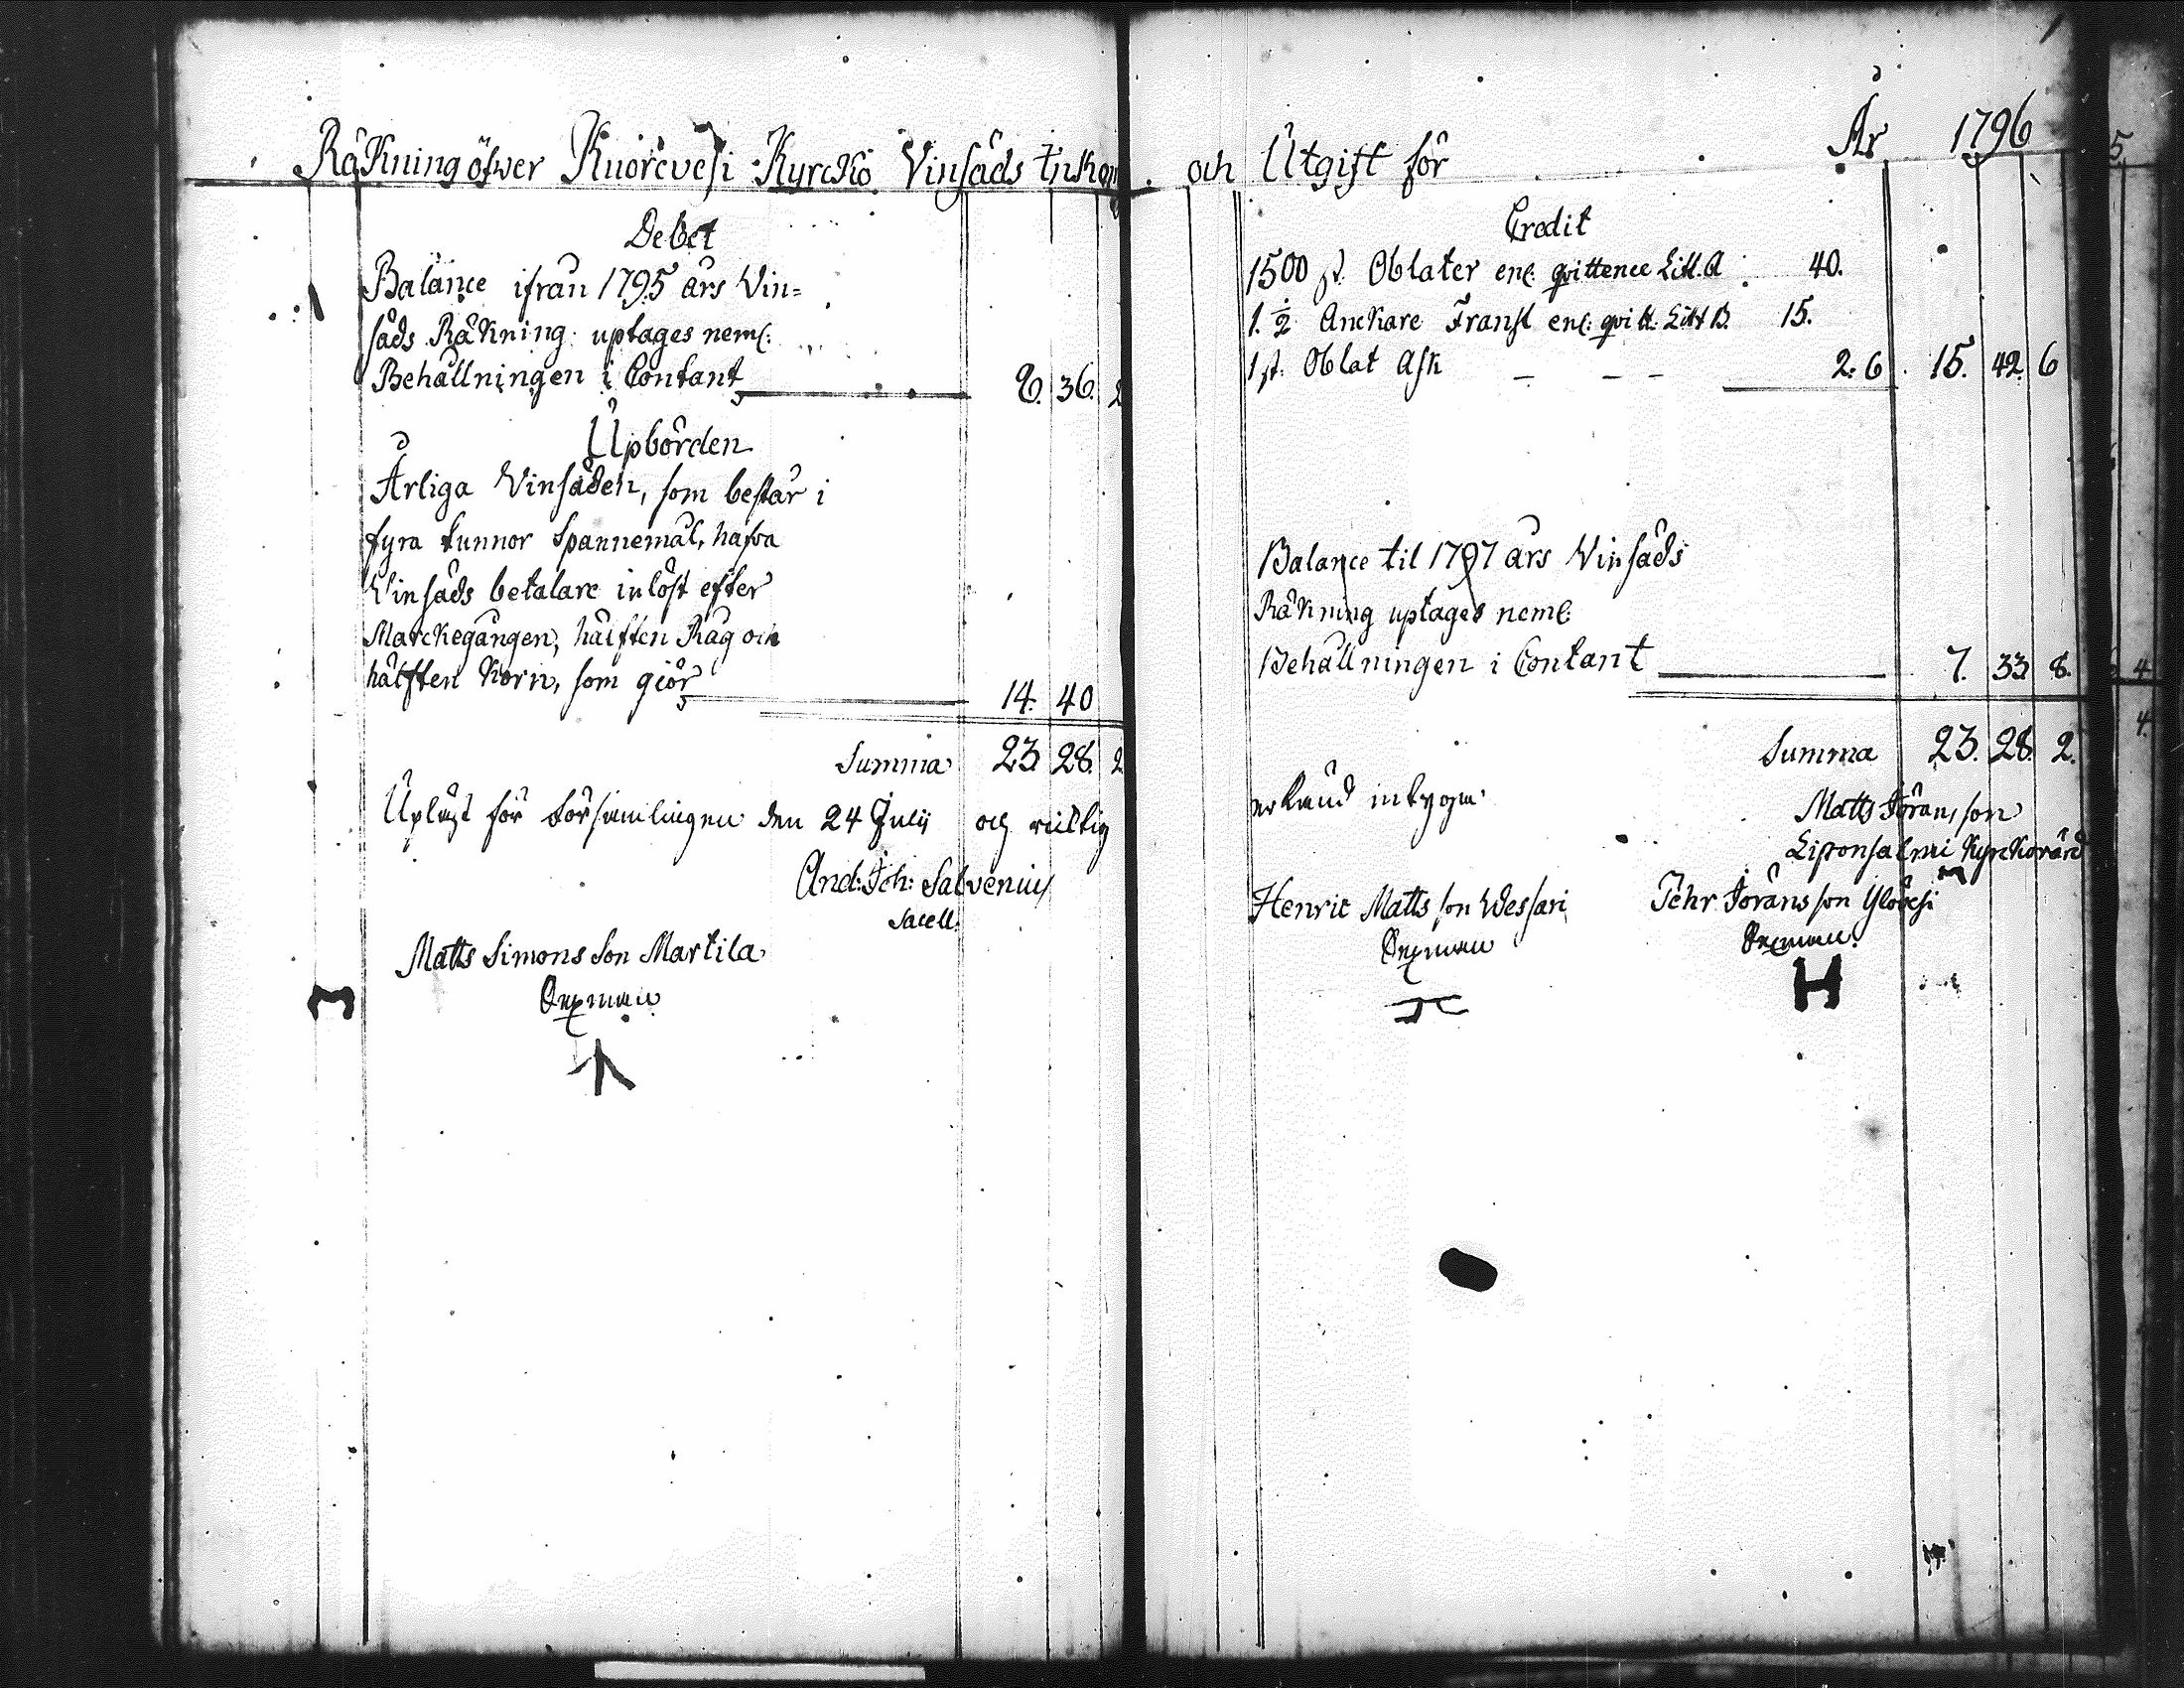 Räkning öfwer Kuorevesi Kyrcko Vinsäds Inkom och Utgift för År 1796
Debet
Balance ifrån 1795 års Vin=
säds Räkning uptages neml:
Behållningen i Contant 8. 36. 2
Upbörden
Årliga Vinsäden, som består i
fyra tunnor Spannemål, hafva
Vinsäds betalare inlöst efter
Marckegången, hälften Råg och
hälften Korn, som giör 14. 40
Summa 23. 28. 2
Upläst för Församlingen den 24 Julii och riktig
And: Joh: Salvenius
Sacell.
Matts Simons Son Martila
Sexman
Credit
1500 st. Oblater enl: qvittence Litt. A 40.
1. ½ Anckare Franst enl: qvitt: Litt B. 15.
1 st: Oblat Ask 2: 6 15. 42. 6
Balance til 1797 års Vinsäds
Räkning uptages neml:
Behållningen i Contant 7. 33 8.
Summa 23. 28. 2.
erkänd intyga
Matts Jöransson
Liponsalmi Kyrckovärd
Henric Matts son Wessari
Sexman
Pehr Jörans son Ylöесsi
Sexman
H
5
4
4.